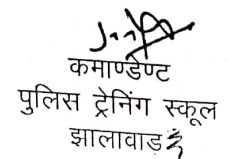 कमाण्डेण्ट
पुलिस ट्रेनिंग स्कूल
झालावाड़